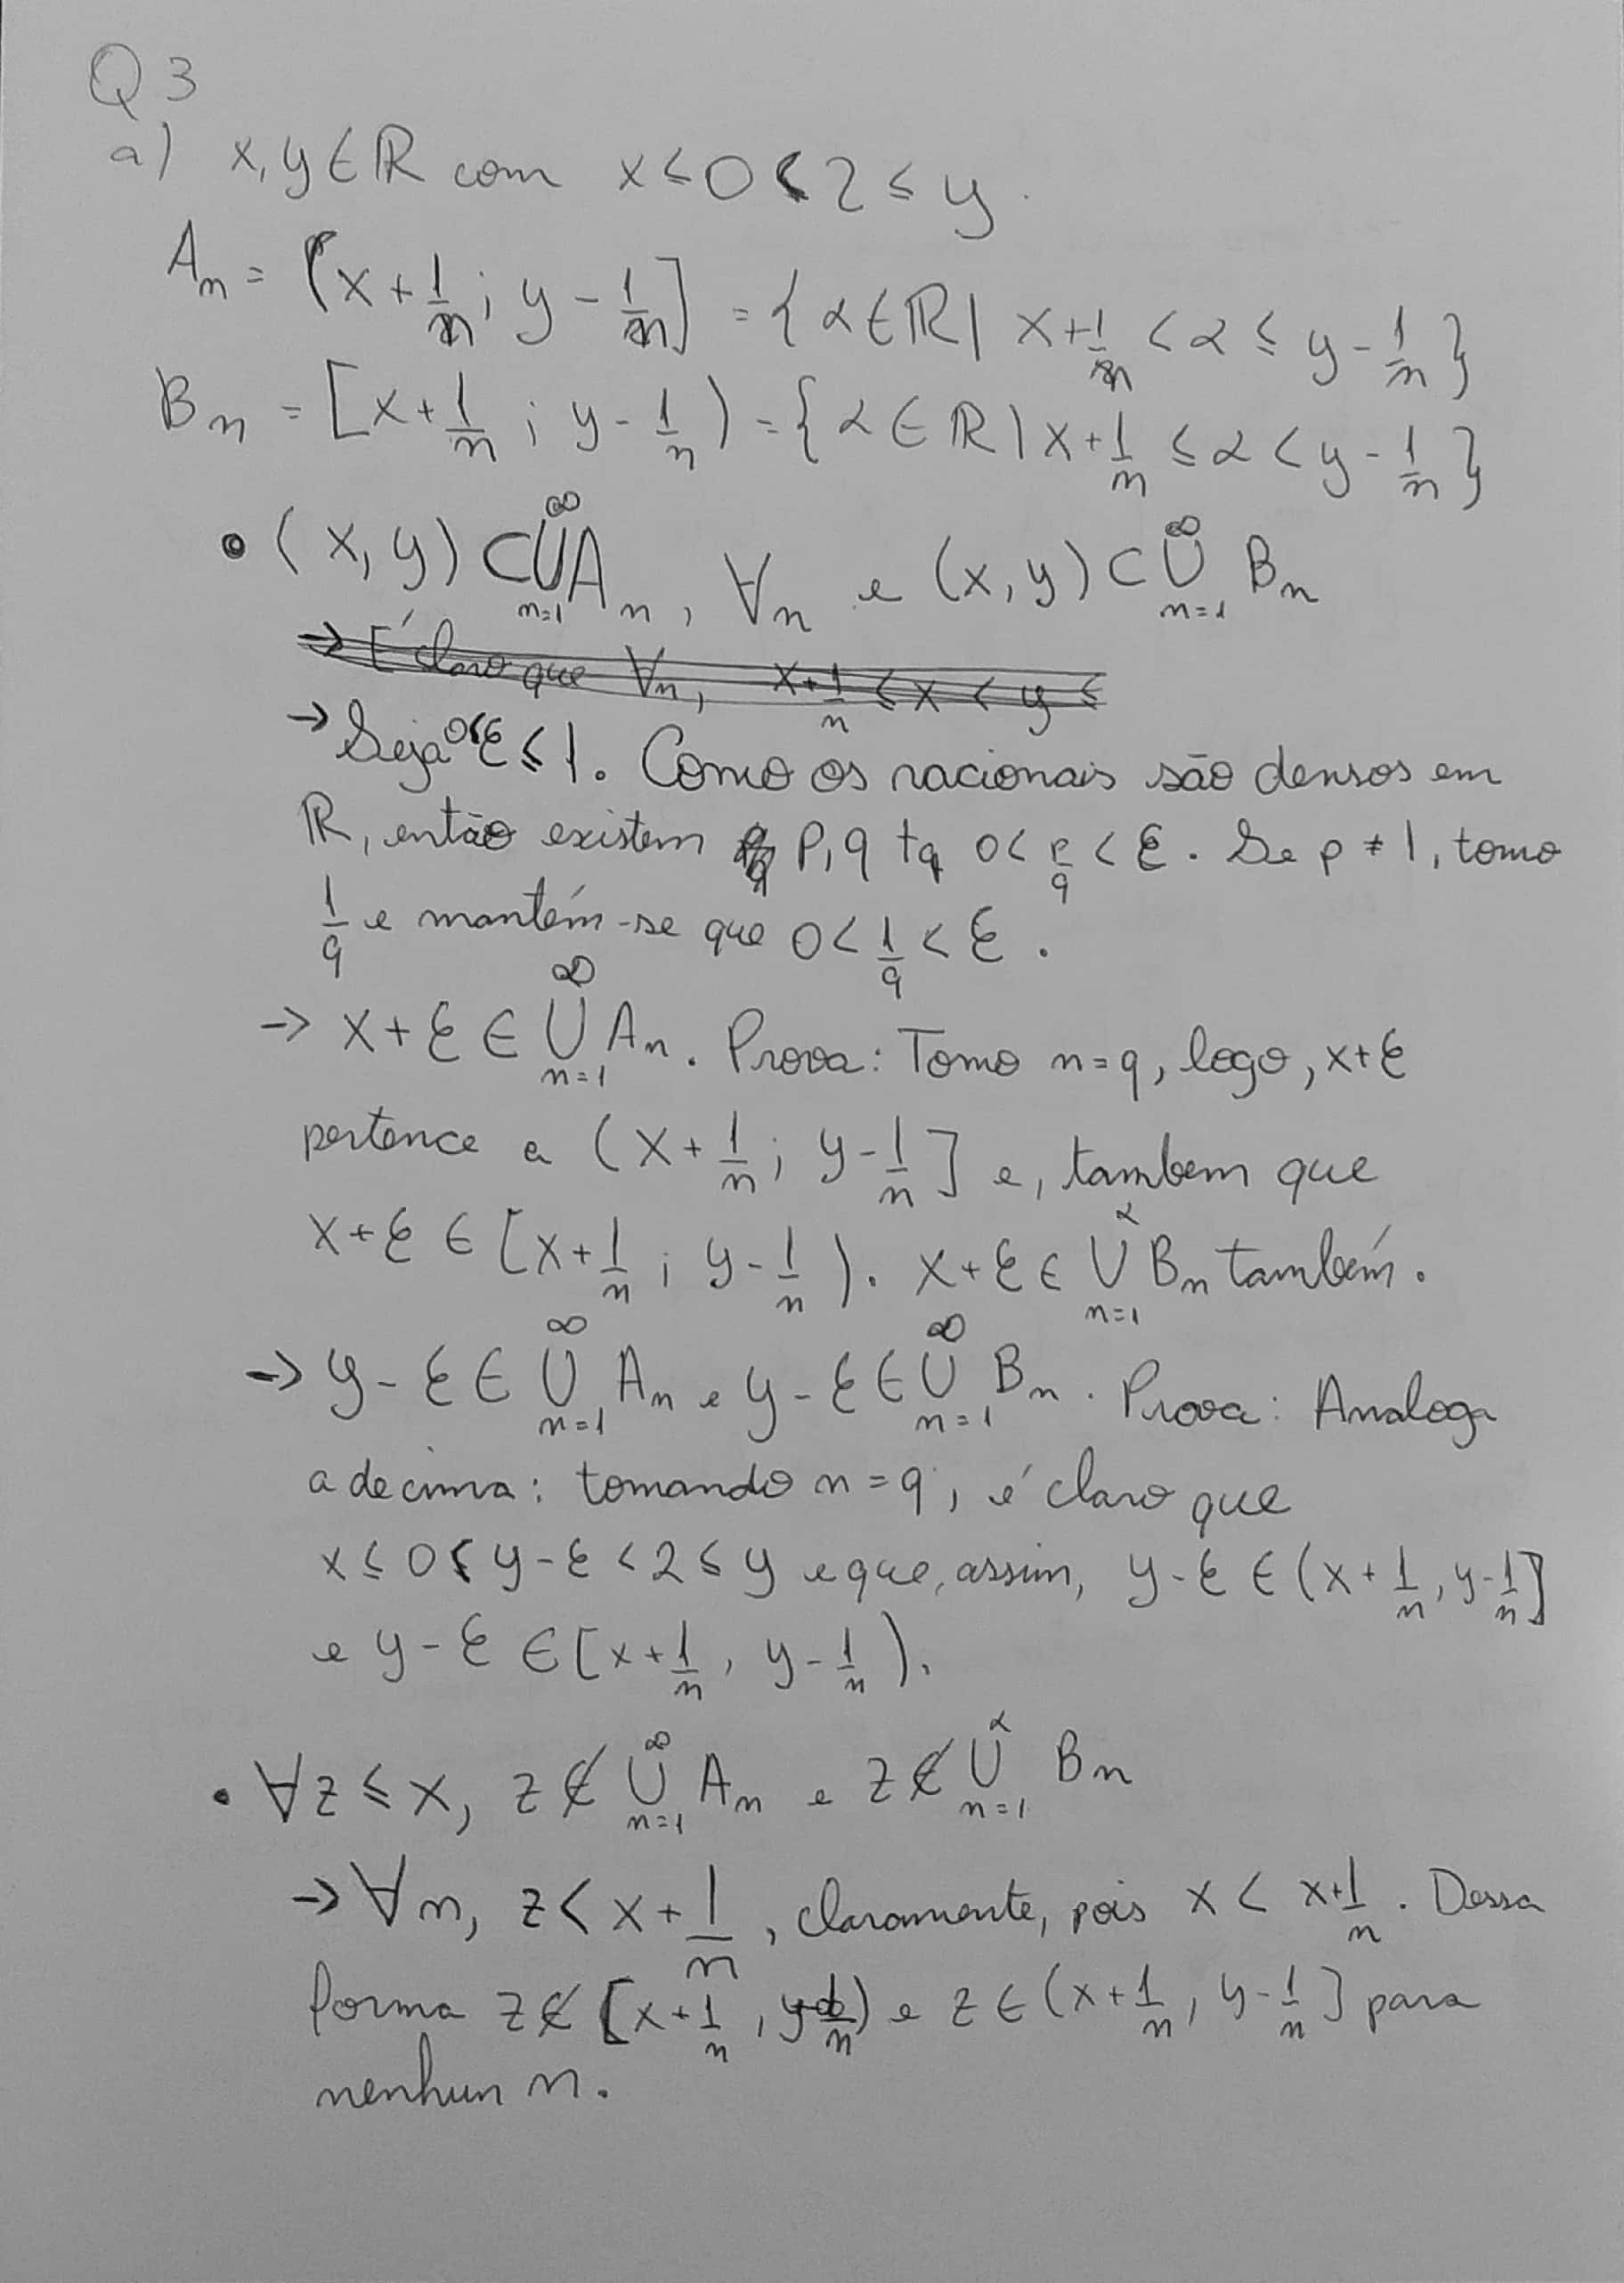 Q3
a) x, y ∈ ℝ com x ≤ 0 < 2 ≤ y.
Aₙ = (x + 1/n ; y - 1/n] = {α ∈ ℝ | x + 1/n < α ≤ y - 1/n}
Bₙ = [x + 1/n ; y - 1/n) = {α ∈ ℝ | x + 1/n ≤ α < y - 1/n}
• (x, y) ⊂ ∞⋃n=1 Aₙ, ∀n e (x, y) ⊂ ∞⋃n=1 Bₙ
→ É claro que ∀n, x + 1/n ≤ x < y ≤
→ Seja 0<ε ≤ 1. Como os racionais são densos em
ℝ, então existem p, q tq 0 < p/q < ε. Se p ≠ 1, tomo
1/q e mantém-se que 0 < 1/q < ε.
→ x + ε ∈ ∞⋃n=1 Aₙ. Prova: Tomo n = q, logo, x + ε
pertence a (x + 1/n ; y - 1/n] e, tambem que
x + ε ∈ [x + 1/n ; y - 1/n). x + ε ∈ ∞⋃n=1 Bₙ também.
→ y - ε ∈ ∞⋃n=1 Aₙ e y - ε ∈ ∞⋃n=1 Bₙ. Prova: Analoga
a de cima: tomando n = q, é claro que
x ≤ 0 ≤ y - ε < 2 ≤ y e que, assim, y - ε ∈ (x + 1/n, y - 1/n]
e y - ε ∈ [x + 1/n, y - 1/n).
• ∀z ≤ x, z ∉ ∞⋃n=1 Aₙ e z ∉ ∞⋃n=1 Bₙ
→ ∀n, z < x + 1/n, claramente, pois x < x + 1/n. Dessa
forma z ∉ [x + 1/n, y - 1/n) e z ∈ (x + 1/n, y - 1/n] para
nenhum n.